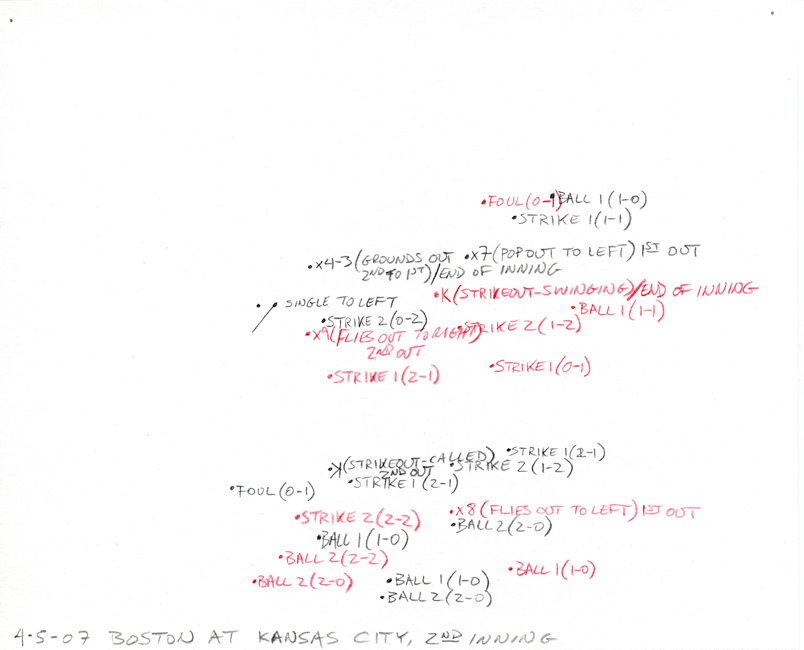 •FOUL(0-1)
•BALL 1(1-0)
•STRIKE 1(1-1)
•X7(POP OUT TO LEFT) 1ST OUT
•X4-3(GROUNDS OUT
2ND TO 1ST)/END OF INNING
•K(STRIKEOUT-SWINGING)/END OF INNING
SINGLE TO LEFT
•BALL 1(1-1)
•STRIKE 2(0-2)
•STRIKE 2(1-2)
•X9(FLIES OUT TO RIGHT)
2ND OUT
•STRIKE 1(0-1)
•STRIKE 1(2-1)
•STRIKE 1(2-1)
•K(STRIKEOUT-CALLED)
2ND OUT
•STRIKE 2(1-2)
•STRIKE 1(2-1)
•FOUL(0-1)
•X8(FLIES OUT TO LEFT) 1ST OUT
•STRIKE 2(2-2)
•BALL 2(2-0)
•BALL 1(1-0)
•BALL 2(2-2)
•BALL 1(1-0)
•BALL 2(2-0)
•BALL 1(1-0)
•BALL 2(2-0)
4-5-07 BOSTON AT KANSAS CITY, 2ND INNING